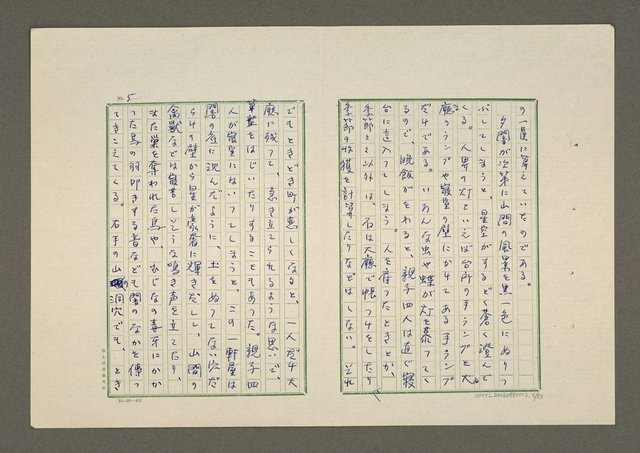 の一員に算えていたのである。
夕闇が次第に山間の風景を黒一色にぬりつ
ぶしてしまうと、星空がするどく蒼く澄んで
くる。人界の灯といえば台所の手ランプと大
廳のランプや寝室の壁にかけてある手ランプ
だけである。いろんな虫や蝶が灯を慕ってく
るので、晩飯がをわると、親子四人は直ぐ寝
台に這入ってしまう。人を雇ったときとか、
季節と以外は、石は大廳で帳つけをしたり
季節の收穫を計算したりなどはしない。それ
でもときどき町が恋しくなると、一人だけ大
廳に残って、急き立てられるような思いで、
算盤をはじいたりすることもあった。親子四
人が寝室にはいってしまうと、この一軒屋は
闇の底に沈んだように、土をぬってない穴だ
らけの壁から星が豪奢に輝きだして、山間の
禽獣などは寝苦しそうな鳴き声を立てたり、
また巣を奪われた鳥や、おじなの毒牙にかか
った鳥の羽叩きする音なども闇のなかを傳っ
てきこえてくる。右手の山洞穴でも、とき
No. 5
NMTL20060950002 5/13